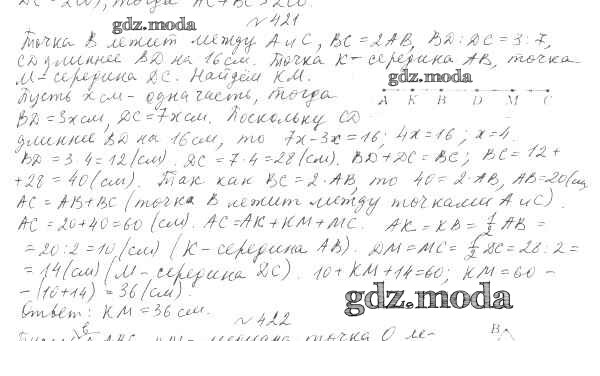 DC = 2OD, тогда AC + BC > 2CO.
№ 421
gdz.moda
Точка B лежит между A и C, BC = 2AB, BD : DC = 3 : 7,
CD длиннее BD на 16 см. Точка K - середина AB, точка
M - середина DC. Найдём KM.
gdz.moda
Пусть x см - одна часть, тогда
A K B D M C
BD = 3x см, DC = 7x см. Поскольку CD
длиннее BD на 16 см, то 7x - 3x = 16; 4x = 16; x = 4.
BD = 3 · 4 = 12 (см). DC = 7 · 4 = 28 (см). BD + DC = BC; BC = 12 +
+ 28 = 40 (см). Так как BC = 2 · AB, то 40 = 2 · AB, AB = 20 (см)
AC = AB + BC (точка B лежит между точками A и C).
AC = 20 + 40 = 60 (см). AC = AK + KM + MC. AK = KB = 1/2 AB =
= 20 : 2 = 10 (см) (K - середина AB). DM = MC = 1/2 DC = 28 : 2 =
= 14 (см) (M - середина DC). 10 + KM + 14 = 60; KM = 60 -
- (10 + 14) = 36 (см).
gdz.moda
Ответ: KM = 36 см.
№ 422
точка O ле-
B